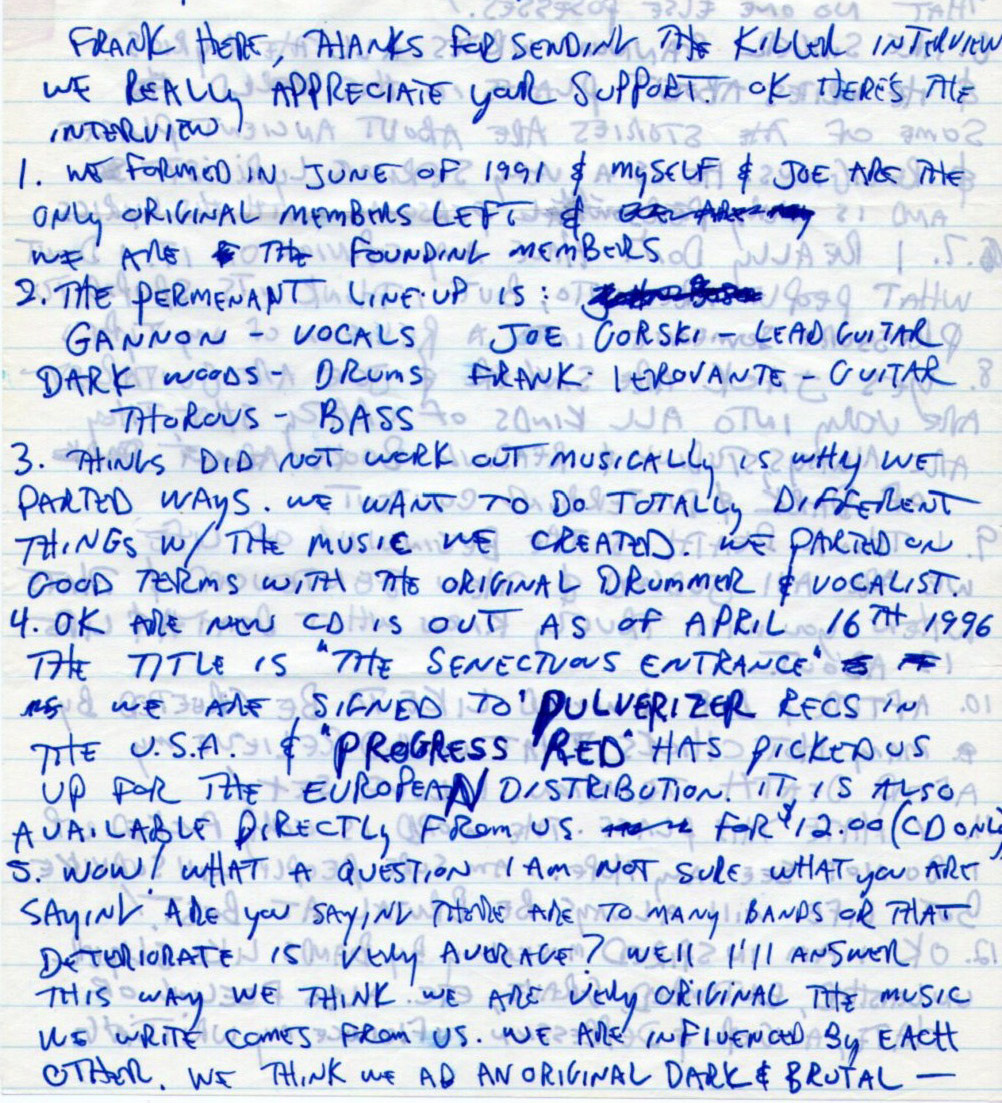 FRANK HERE, THANKS FOR SENDING THE KILLER INTERVIEW
WE REALLY APPRECIATE YOUR SUPPORT. OK HERE'S THE
INTERVIEW
1. WE FORMED IN JUNE OF 1991 & MYSELF & JOE ARE THE
ONLY ORIGINAL MEMBERS LEFT &
WE ARE THE FOUNDING MEMBERS
2. THE PERMENANT LINE-UP IS:
GANNON - VOCALS JOE GORSKI - LEAD GUITAR
DARK WOODS - DRUMS FRANK LEROVANTE - GUITAR
THOROUS - BASS
3. THINGS DID NOT WORK OUT MUSICALLY IS WHY WE
PARTED WAYS. WE WANT TO DO TOTALLY DIFFERENT
THINGS W/ THE MUSIC WE CREATED. WE PARTED ON
GOOD TERMS WITH THE ORIGINAL DRUMMER & VOCALIST.
4. OK ARE NEW CD IS OUT AS OF APRIL 16TH 1996
THE TITLE IS "THE SENECTUOUS ENTRANCE"
WE ARE SIGNED TO "PULVERIZER RECS IN
THE U.S.A. & "PROGRESS RED" HAS PICKED US
UP FOR THE EUROPEAN DISTRIBUTION. IT IS ALSO
AVAILABLE DIRECTLY FROM US FOR $12.00 (CD ONLY)
5. WOW! WHAT A QUESTION I AM NOT SURE WHAT YOU ARE
SAYING. ARE YOU SAYING THERE ARE TO MANY BANDS OR THAT
DETERIORATE IS VERY AVERAGE? WELL I'll ANSWER
THIS WAY WE THINK WE ARE VERY ORIGINAL THE MUSIC
WE WRITE COMES FROM US. WE ARE INFLUENCED BY EACH
OTHER. WE THINK WE AD AN ORIGINAL DARK & BRUTAL —